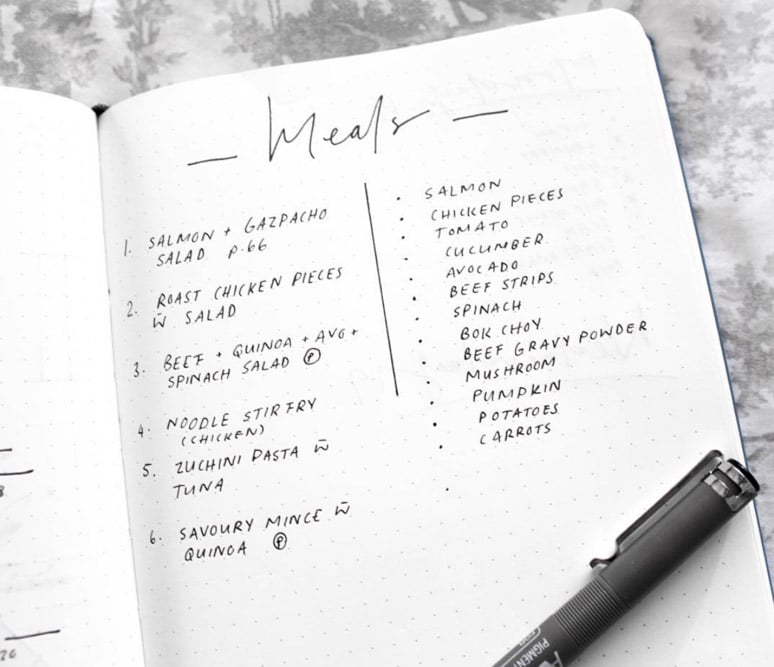 Meals
1. SALMON + GAZPACHO
SALAD P.66
2. ROAST CHICKEN PIECES
W̄ SALAD
3. BEEF + QUINOA + AVG +
SPINACH SALAD Ⓟ
4. NOODLE STIRFRY
(CHICKEN)
5. ZUCHINI PASTA W̄
TUNA
6. SAVOURY MINCE W̄
QUINOA Ⓟ
• SALMON
• CHICKEN PIECES
• TOMATO
• CUCUMBER
• AVOCADO
• BEEF STRIPS
• SPINACH
• BOK CHOY
• BEEF GRAVY POWDER
• MUSHROOM
• PUMPKIN
• POTATOES
• CARROTS
PIGMENT